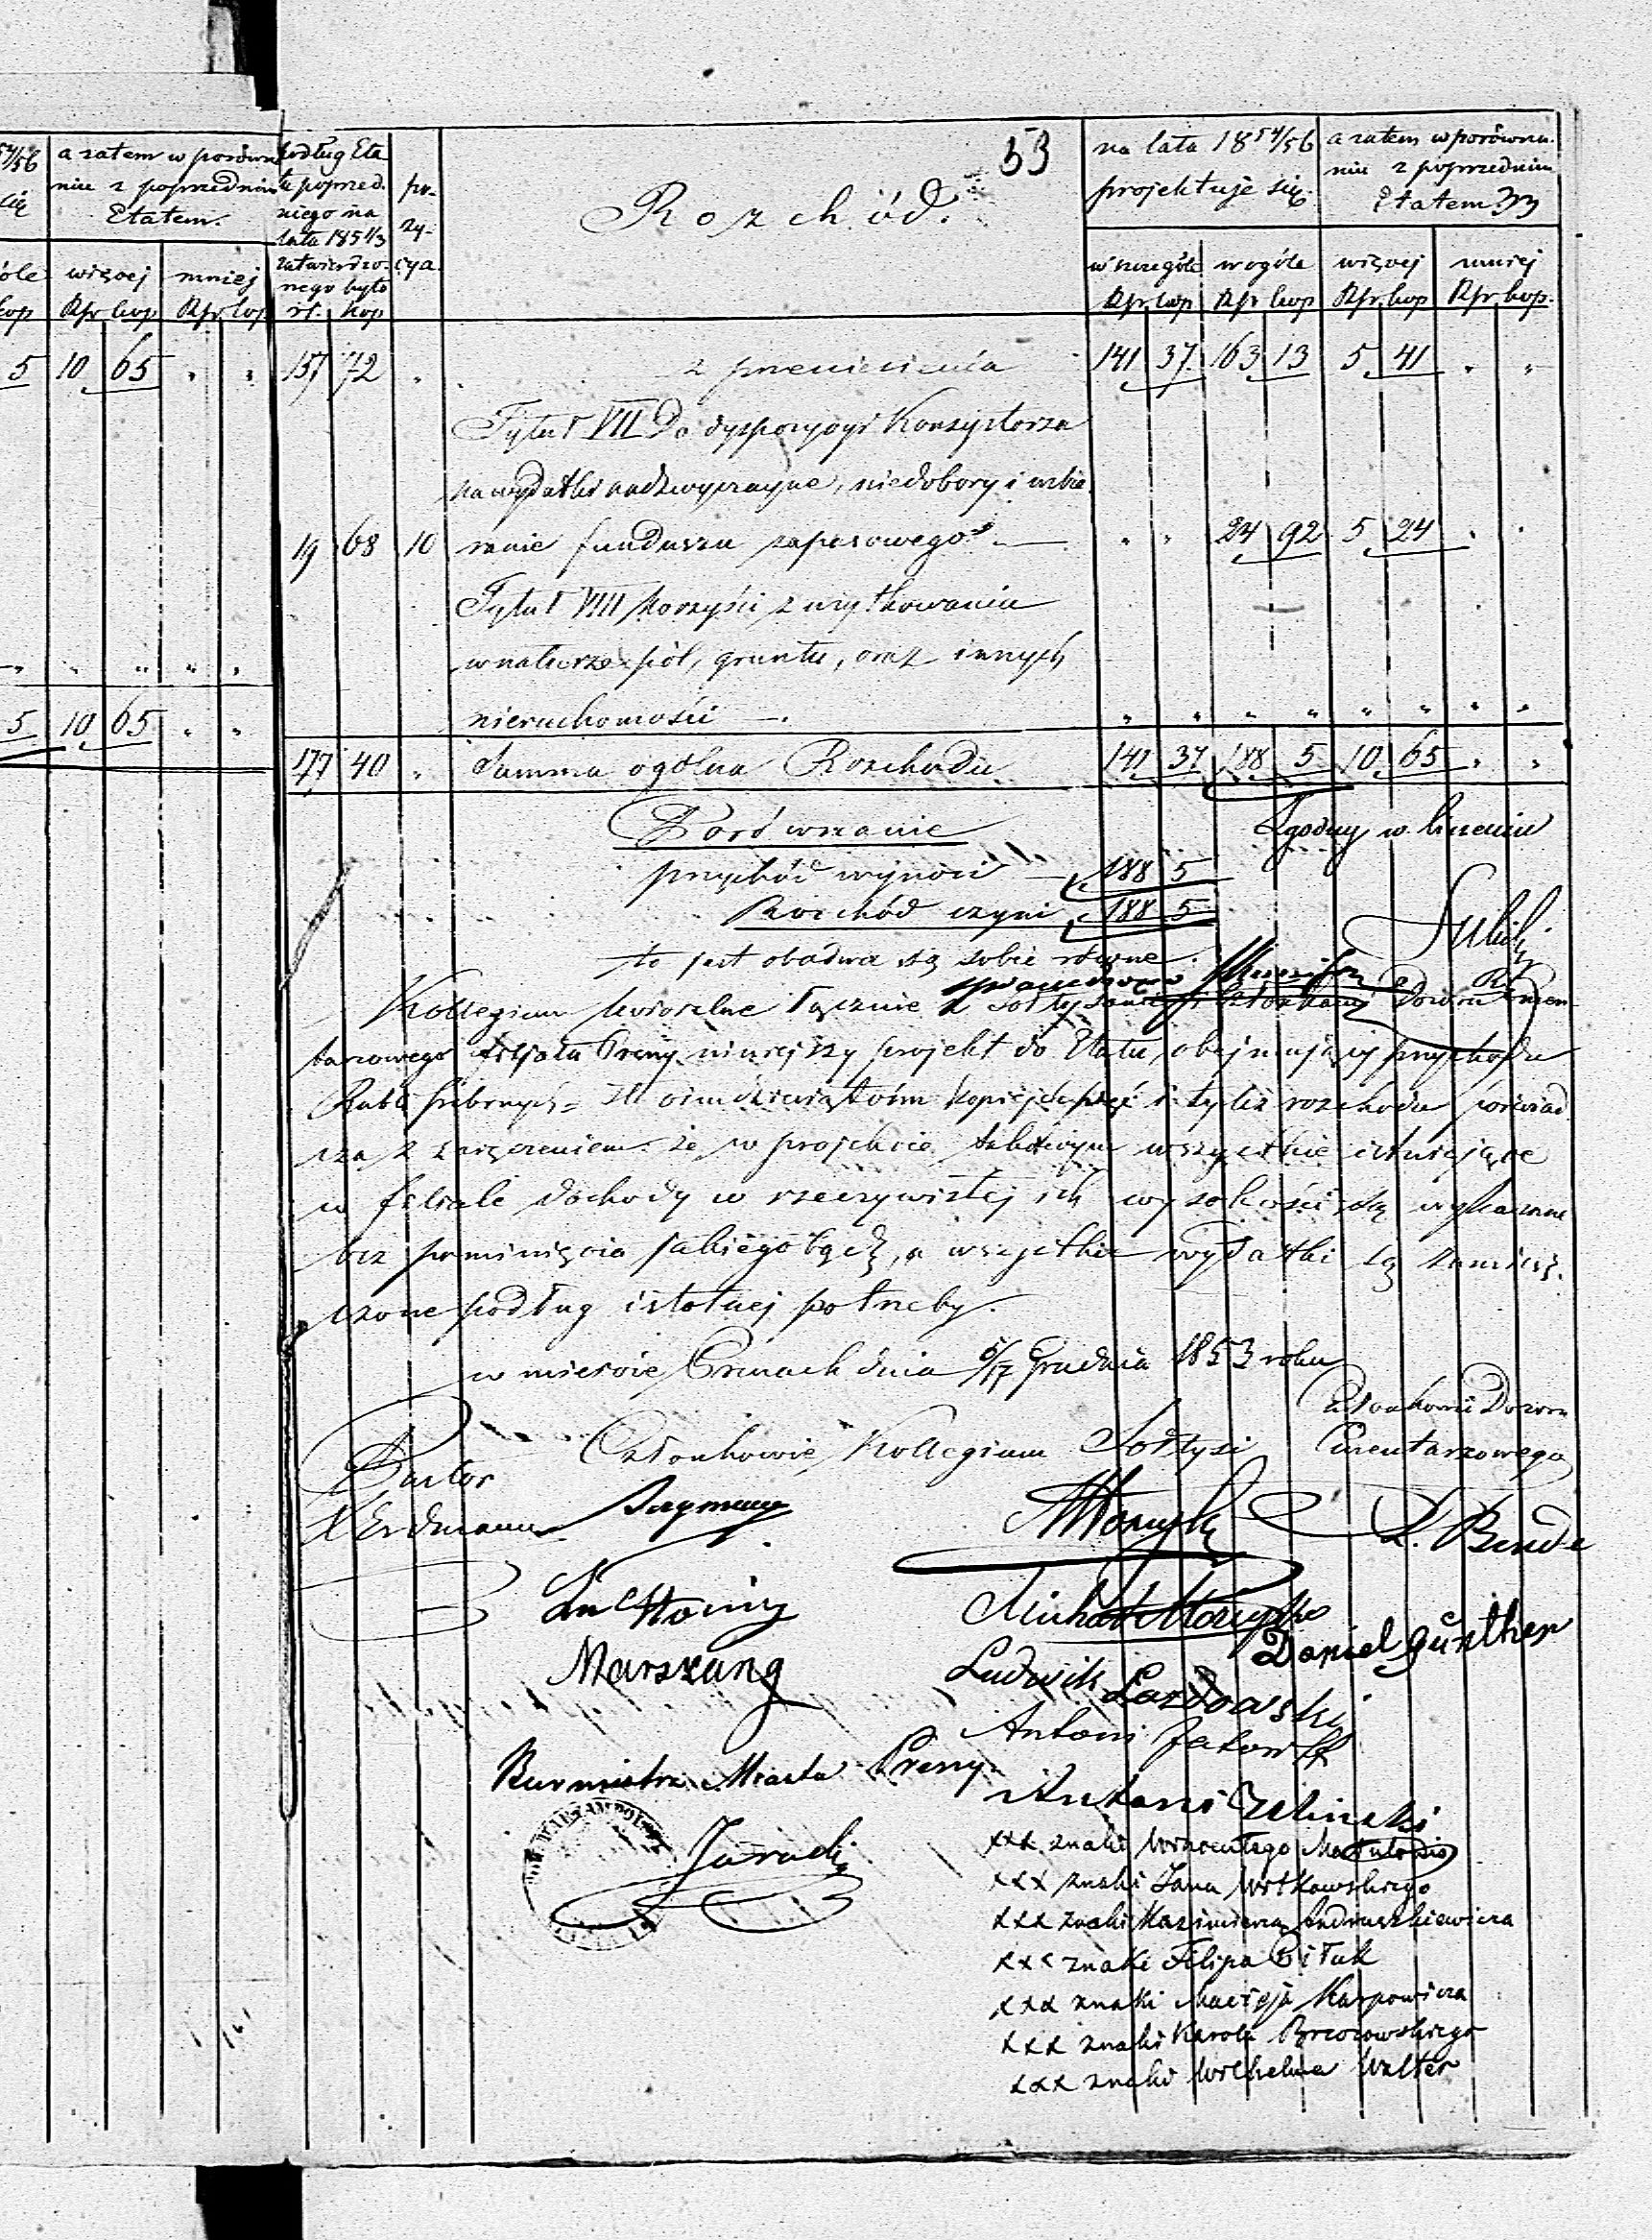 53
Rozchód.
54/56 a zatem w porówna
niu z poprzednim
Etatem.
więcej mniej
Rsr kop Rsr kop
5 10 65 " "
" " " " "
5 10 65 " "
podług Eta
tu poprzed.
niego na
lata 1851/3
zatwierdzo-
nego było
rs. kop
po-
zy-
cya.
na lata 1854/56
projektuje się.
w szczególe w ogóle
Rsr kop Rsr kop
a zatem w porówna.
niu z poprzednim
Etatem
więcej mniej
Rsr kop Rsr kop.
157 72 " z przeniesienia 141 37 163 13 5 41 " "
Tytuł VII Do dyspozycyi Konsystorza
na wydatki nadzwyczayne, niedobory i uzbie
19 68 10 ranie funduszu zapasowego — " " 24 92 5 24 " "
Tytuł VIII Korzyści z użytkowania
w naturze pól, gruntu, oraz innych
nieruchomości —. " " " " " " " "
177 40 " Summa ogólna Rozchodu 141 37 188 5 10 65 " "
Porównanie Zgodny w liczeniu
przychód wynosi — 188 5
Rozchód czyni 188 5
to jest obadwa są sobie równe.
Kollegium kościelne łącznie z Sołtysami i Członkami Dozoru Cmen
tarzowego filjału Preny niniejszy projekt do Etatu, obejmujący przychodu
Rubli srebrnych sto ośmdziesiąt ośm kopiejek pięć i tyleż rozchodu poświad
cza z zaręczeniem że w projekcie takowym wszystkie istniejące
w filiale dochody w rzeczywistej ich wysokości są wykazane
bez pominięcia jakiegobądź, a wszystkie wydatki są zamiesz.
czone podług istotnej potrzeby.
w mieście Prenach dnia 5/17 Grudnia 1853 roku
Pastor Członkowie Kollegium Sołtysi Członkowie Dozoru
Cmentarzowego
X Erdmann
L. Bende
Michał
Daniel Günther
Marszang
Ludwik Lazdowski
Antoni
Burmistrz Miasta Preny
Antoni Zeliński
xxx znaki Wincentego
xxx znaki Jana Witkowskiego
xxx znaki Kazimierza Andruszkiewicza
xxx znaki Filipa Pituk
xxx znaki Macieja Karpowicza
xxx znaki Karola Brzozowskiego
xxx znaki Wilhelma Walter